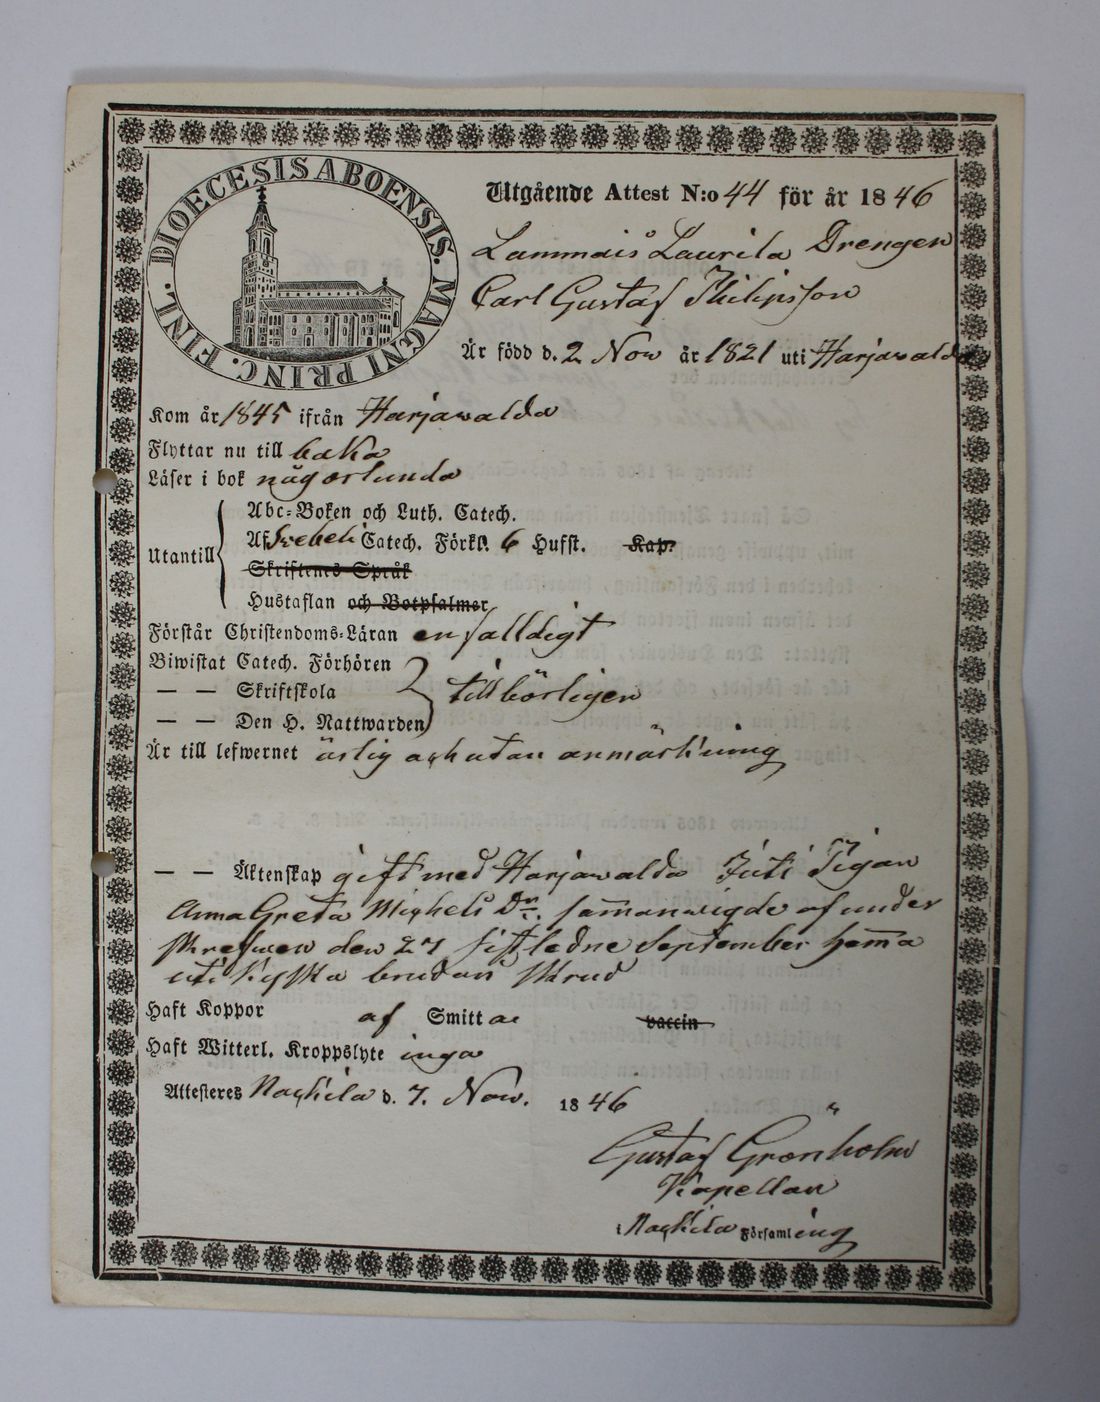 DIOECESIS ABOENSIS. MAGNI PRINC. FINL.
Utgående Attest N:o 44 för år 1846
Lammais Laurila Drengen
Carl Gustaf Philipsson
Är född d. 2 Nov år 1821 uti Harjawalda
Kom år 1845 ifrån Harjawalda
Flyttar nu till baka
Läser i bok någorlunda
Utantill
Abc-Boken och Luth. Catech.
Af Svebeli Catech. Förkl. 6 Hufst. Kap.
Skriftenes Språk
Hustaflan och Botpsalmer
Förstår Christendoms-Läran enfalldigt
Biwistat Catech. Förhören
— — Skriftskola tillbörligen
— — Den H. Nattwarden
Är till lefwernet ärlig och utan anmärkning
— — Äktenskap gift med Harjawalda Juti Pigan
Anna Greta Michels Dr. sammanwigde af under
skrefwen den 27 sistledne September hemma
uti kyska brudars skrud
Haft Koppor af Smitta vaccin
Haft Witterl. Kroppslyte inga
Attesteres Nackila d. 7. Nov. 1846
Gustaf Grönholm
Kapellan
i Nackila Församling